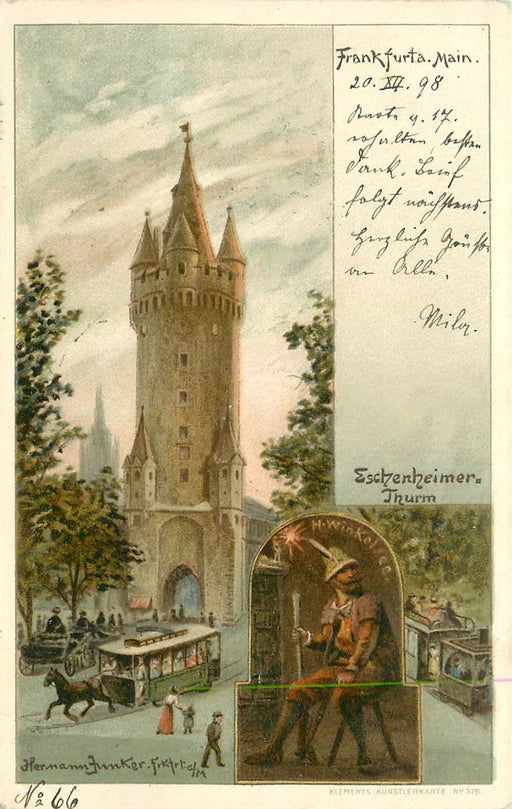 Frankfurt a. Main.
20. XII. 98
Karte v. 17.
erhalten, besten
Dank. Brief
folgt nächstens.
Herzliche Grüße
an Alle.
Eschenheimer-
Thurm
H. Winkelsee
Hermann Junker. Frkfrt a/M
KLEMENTS KÜNSTLERKARTE No 375.
No 66